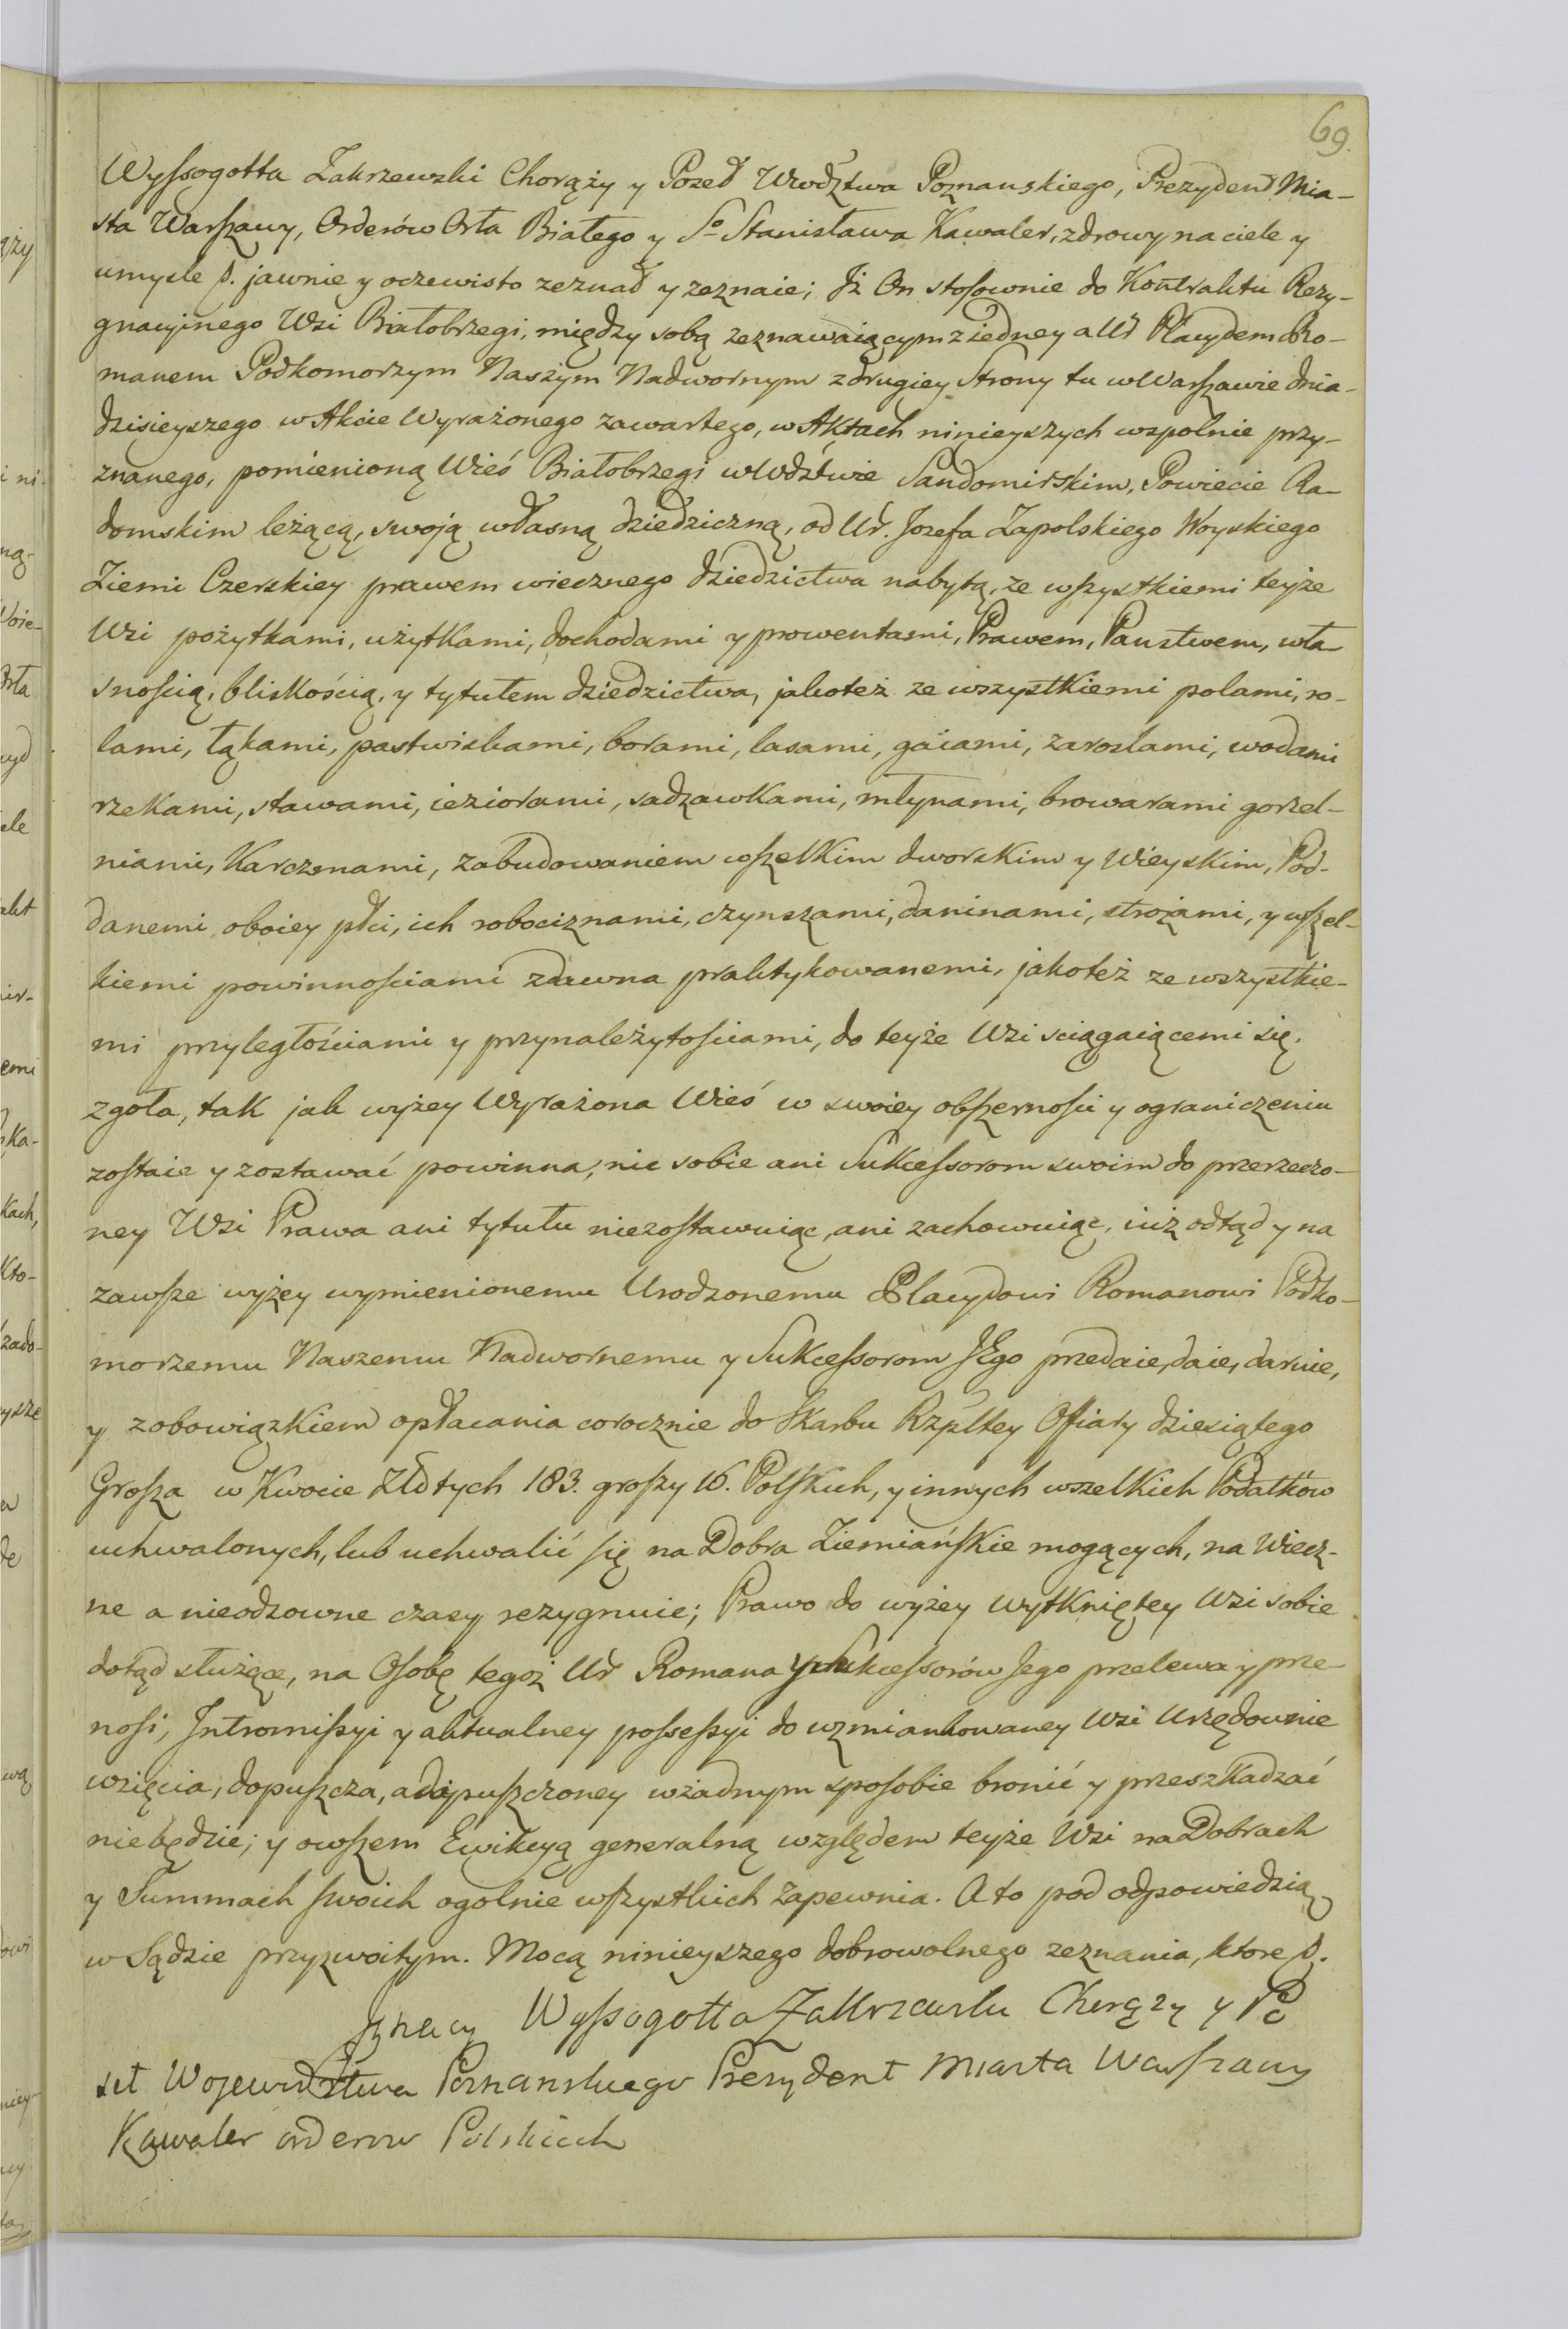 69.
Wyssogotta Zakrzewski Chorąży y Poseł Wwdztwa Poznanskiego, Prezydent Mia-
sta Warszawy, Orderów Orła Białego y So Stanisława Kawaler, zdrowy na ciele y
umysle p. jawnie y oczewisto zeznał y zeznaie; Iż On stosownie do Kontraktu Rezy-
gnacyjnego Wsi Białobrzegi, między sobą zeznawaiącym z iedney a Ur Placydem Ro-
manem Podkomorzym Naszym Nadwornym z drugiey Strony tu w Warszawie dnia
dzisieyszego w Akcie Wyrażonego zawartego, w Aktach ninieyszych wspolnie przy-
znanego, pomienioną Wieś Białobrzegi w Wdztwie Sandomirskim, Powiecie Ra-
domskim leżącą, swoją własną dziedziczną, od Ur. Jozefa Zapolskiego Woyskiego
Ziemi Czerskiey prawem wiecznego dziedzictwa nabytą, ze wszystkiemi teyże
Wsi pożytkami, użytkami, dochodami y prowentami, Prawem, Panstwem, wła-
snością, bliskością, y tytułem dziedzictwa, jakoteż ze wszystkiemi polami, ro-
lami, łąkami, pastwiskami, borami, lasami, gaiami, zaroslami, wodami
rzekami, stawami, ieziorami, sadzawkami, młynami, browarami gorzel-
niami, Karczmami, zabudowaniem wszelkim dworskim y Wieyskim, Pod-
danemi oboiey płci, ich robociznami, czynszami, daninami, strożami, y wszel-
kiemi powinnosciami zdawna praktykowanemi, jakoteż ze wszystkie-
mi przyległościami y przynależytosciami, do teyże Wsi sciągaiącemi się.
zgoła, tak jak wyżey Wyrażona Wieś w swoiey obszernosci y ograniczeniu
zostaie y zostawać powinna, nic sobie ani Sukcessorom swoim do przerzeczo-
ney Wsi Prawa ani tytułu niezostawuiąc, ani zachowuiąc, iuż odtąd y na
zawsze wyżey wymienionemu Urodzonemu Placydowi Romanowi Podko-
morzemu Naszemu Nadwornemu y Sukcessorom JEgo przedaie, daie, daruie,
y z obowiązkiem opłacania corocznie do Skarbu Rzpltey Offiary dziesiątego
Grosza w Kwocie Złotych 183. groszy 16. Polskich, y innych wszelkich Podatków
uchwalonych, lub uchwalić się na Dobra Ziemiańskie mogących, na Wiecz-
ne a nieodzowne czasy rezygnuie; Prawo do wyżey wytkniętey Wsi sobie
dotąd służące, na Osobę tegoż Ur Romana y Sukcessorów Jego przelewa y prze-
nosi, Intromissyi y aktualney possessyi do wzmiankowaney Wsi Urzędownie
wzięcia, dopuszcza, a dopuszczoney w żadnym sposobie bronić y przeszkadzać
niebędzie; y owszem Ewikcyą generalną względem teyże Wsi na Dobrach
y Summach swoich ogolnie wszystkich zapewnia. A to pod odpowiedzią
w Sądzie przyzwoitym. Mocą ninieyszego dobrowolnego zeznania, ktore p.
Ignacy Wyssogotta Zakrzewski Chorązy y Po
seł Wojewodztwa Poznanskiego Prezydent Miasta Warszawy
Kawaler orderow Polskich